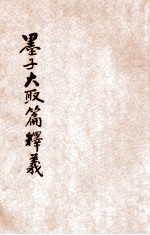 墨子大取篇釋義